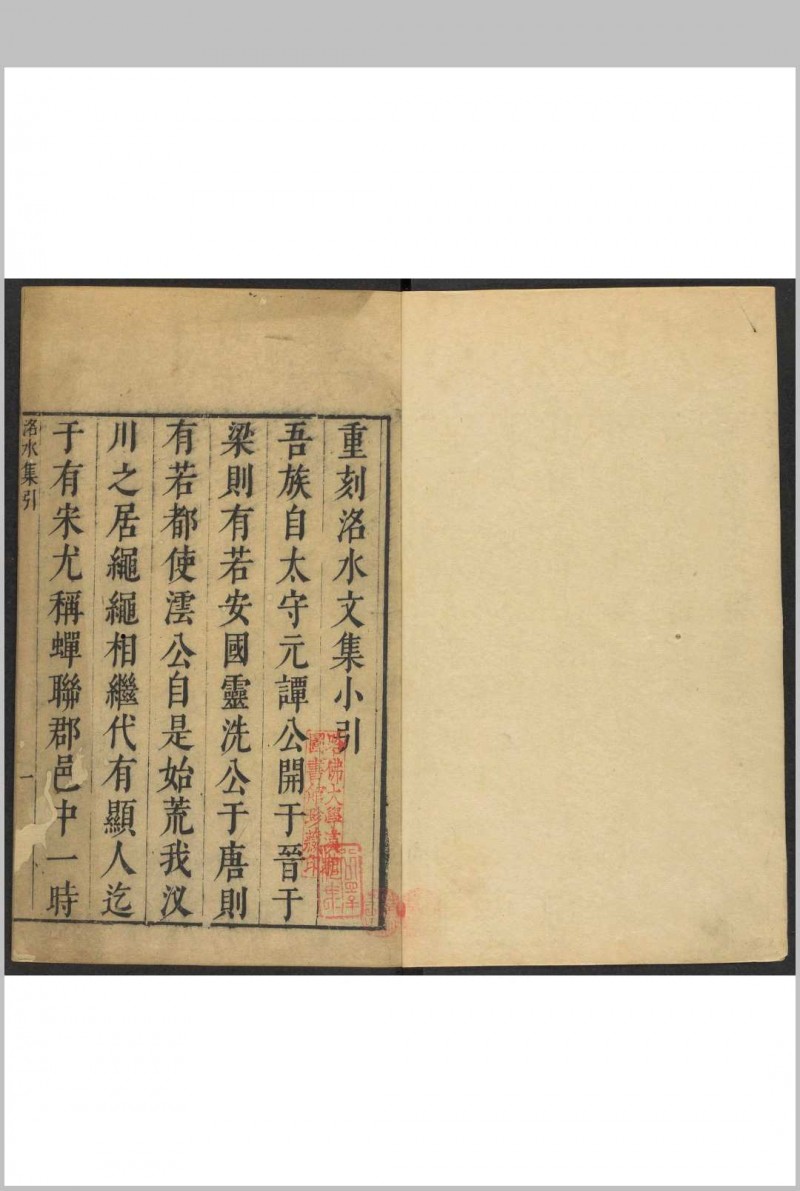 重刻洺水文集小引
吾族自太守元譚公開于晉于
梁則有若安國靈洗公于唐則
有若都使澐公自是始荒我汊
川之居繩繩相繼代有顯人迄
于有宋尤稱蟬聯郡邑中一時
洺水集引
一
哈佛大學漢和
圖書館珍藏印